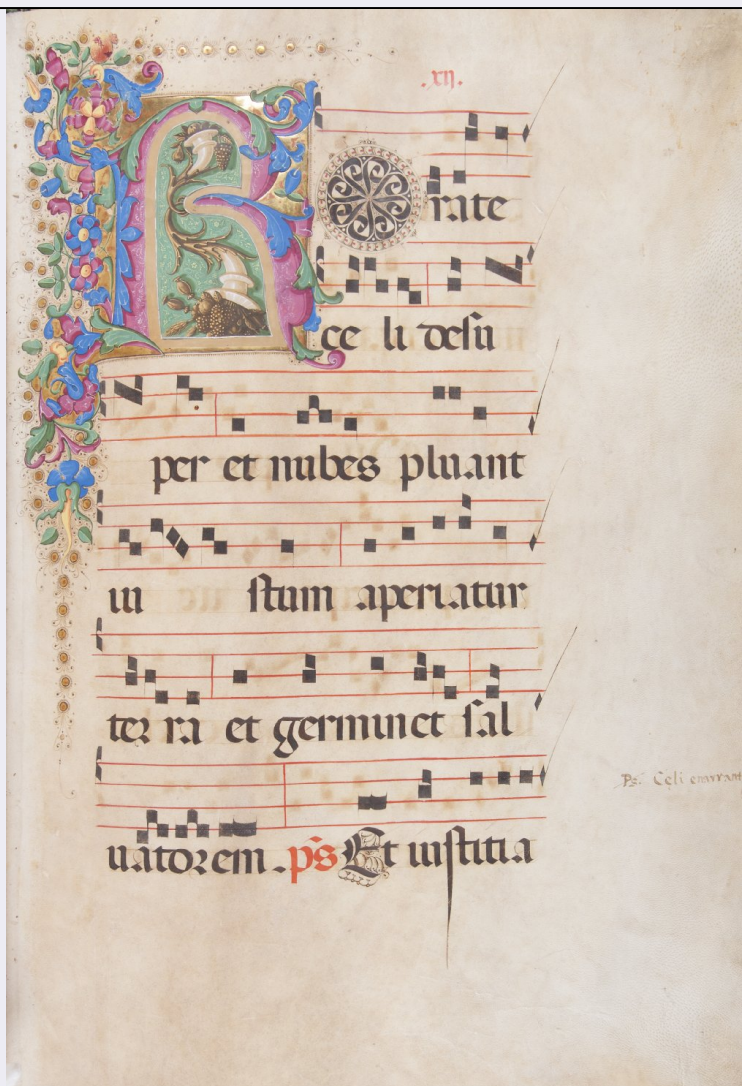 .xij.
Rorate
celi desu
per et nubes pluant
iu stum aperiatur
ter ra et germinet sal
uatorem. ps Et iustitia
Ps. Celi enarrant